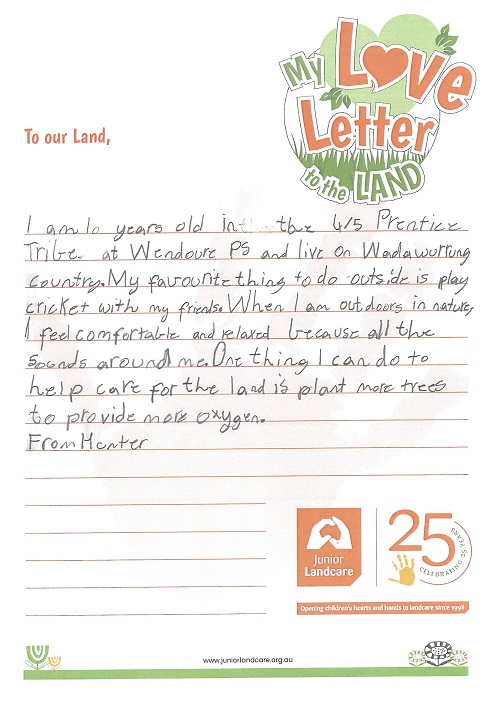 My Love
Letter
to the LAND
To our Land,
I am 10 years old in the 4/5 Prentice
Tribe at Wendoure PS and live on Wadawurrung
country. My favourite thing to do outside is play
cricket with my friends. When I am outdoors in nature,
I feel comfortable and relaxed because all the
sounds around me. One thing I can do to
help care for the land is plant more trees
to provide more oxygen.
From Hunter
Junior
Landcare
25
CELEBRATING 25 YEARS
Opening children's hearts and hands to landcare since 1998
www.juniorlandcare.org.au